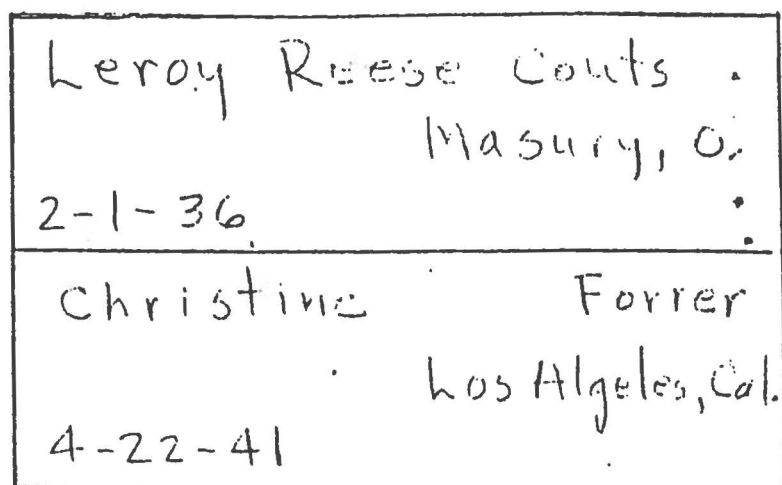 Leroy Reese Couts
Masury, O.
2-1-36
Christine Forrer
Los Algeles, Cal.
4-22-41